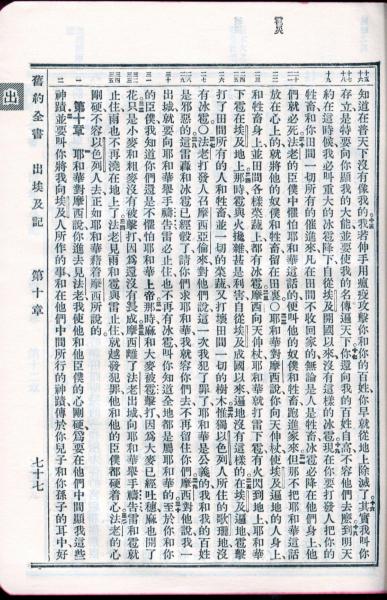 雹災
知道在普天下沒有像我的我若伸手用瘟疫攻擊你和你的百姓你早就從地上除滅了其實我叫你
存立是特要向你顯我的大能並要使我的名傳遍天下你還向我的百姓自高不容他們去麼到明天
約在這時候我必叫重大的冰雹降下自從埃及開國以來沒有這樣的冰雹現在你要打發人把你的
牲畜和你田間一切所有的催進來凡在田間不收回家的無論是人是牲畜冰雹必降在他們身上他
們就必死法老的臣僕中懼怕耶和華這話的便叫他的奴僕和牲畜跑進家來但那不把耶和華這話
放在心上的就將他的奴僕和牲畜留在田裏○耶和華對摩西說你向天伸杖使埃及遍地的人身上
和牲畜身上並田間各樣菜蔬上都有冰雹摩西向天伸杖耶和華就打雷下雹有火閃到地上耶和華
下雹在埃及地上那時雹與火攙雜甚是利害自從埃及成國以來遍地沒有這樣的在埃及遍地雹擊
打了田間所有的人和牲畜並一切的菜蔬又打壞田間一切的樹木惟獨以色列人所住的歌珊地沒
有冰雹○法老打發人召摩西亞倫來對他們說這一次我犯了罪了耶和華是公義的我和我的百姓
是邪惡的這雷轟和冰雹已經彀了請你們求耶和華我就容你們去不再留住你們摩西對他說我一
出城就要向耶和華舉手禱告雷必止住也不再有冰雹叫你知道全地都是屬耶和華的至於你和你
的臣僕我知道你們還是不懼怕耶和華上帝那時麻和大麥被雹擊打因爲大麥已經吐穗麻也開了
花只是小麥和粗麥沒有被擊打因爲還沒有長成摩西離了法老出城向耶和華舉手禱告雷和雹就
止住雨也不再澆在地上了法老見雨和雹與雷止住就越發犯罪他和他的臣僕都硬着心法老的心
剛硬不容以色列人去正如耶和華藉着摩西所說的
第十章 耶和華對摩西說你進去見法老我使他和他臣僕的心剛硬爲要在他們中間顯我這些
神蹟並要叫你將我向埃及人所作的事和在他們中間所行的神蹟傳於你兒子和你孫子的耳中好
舊約全書 出埃及記 第十章 七十七
出